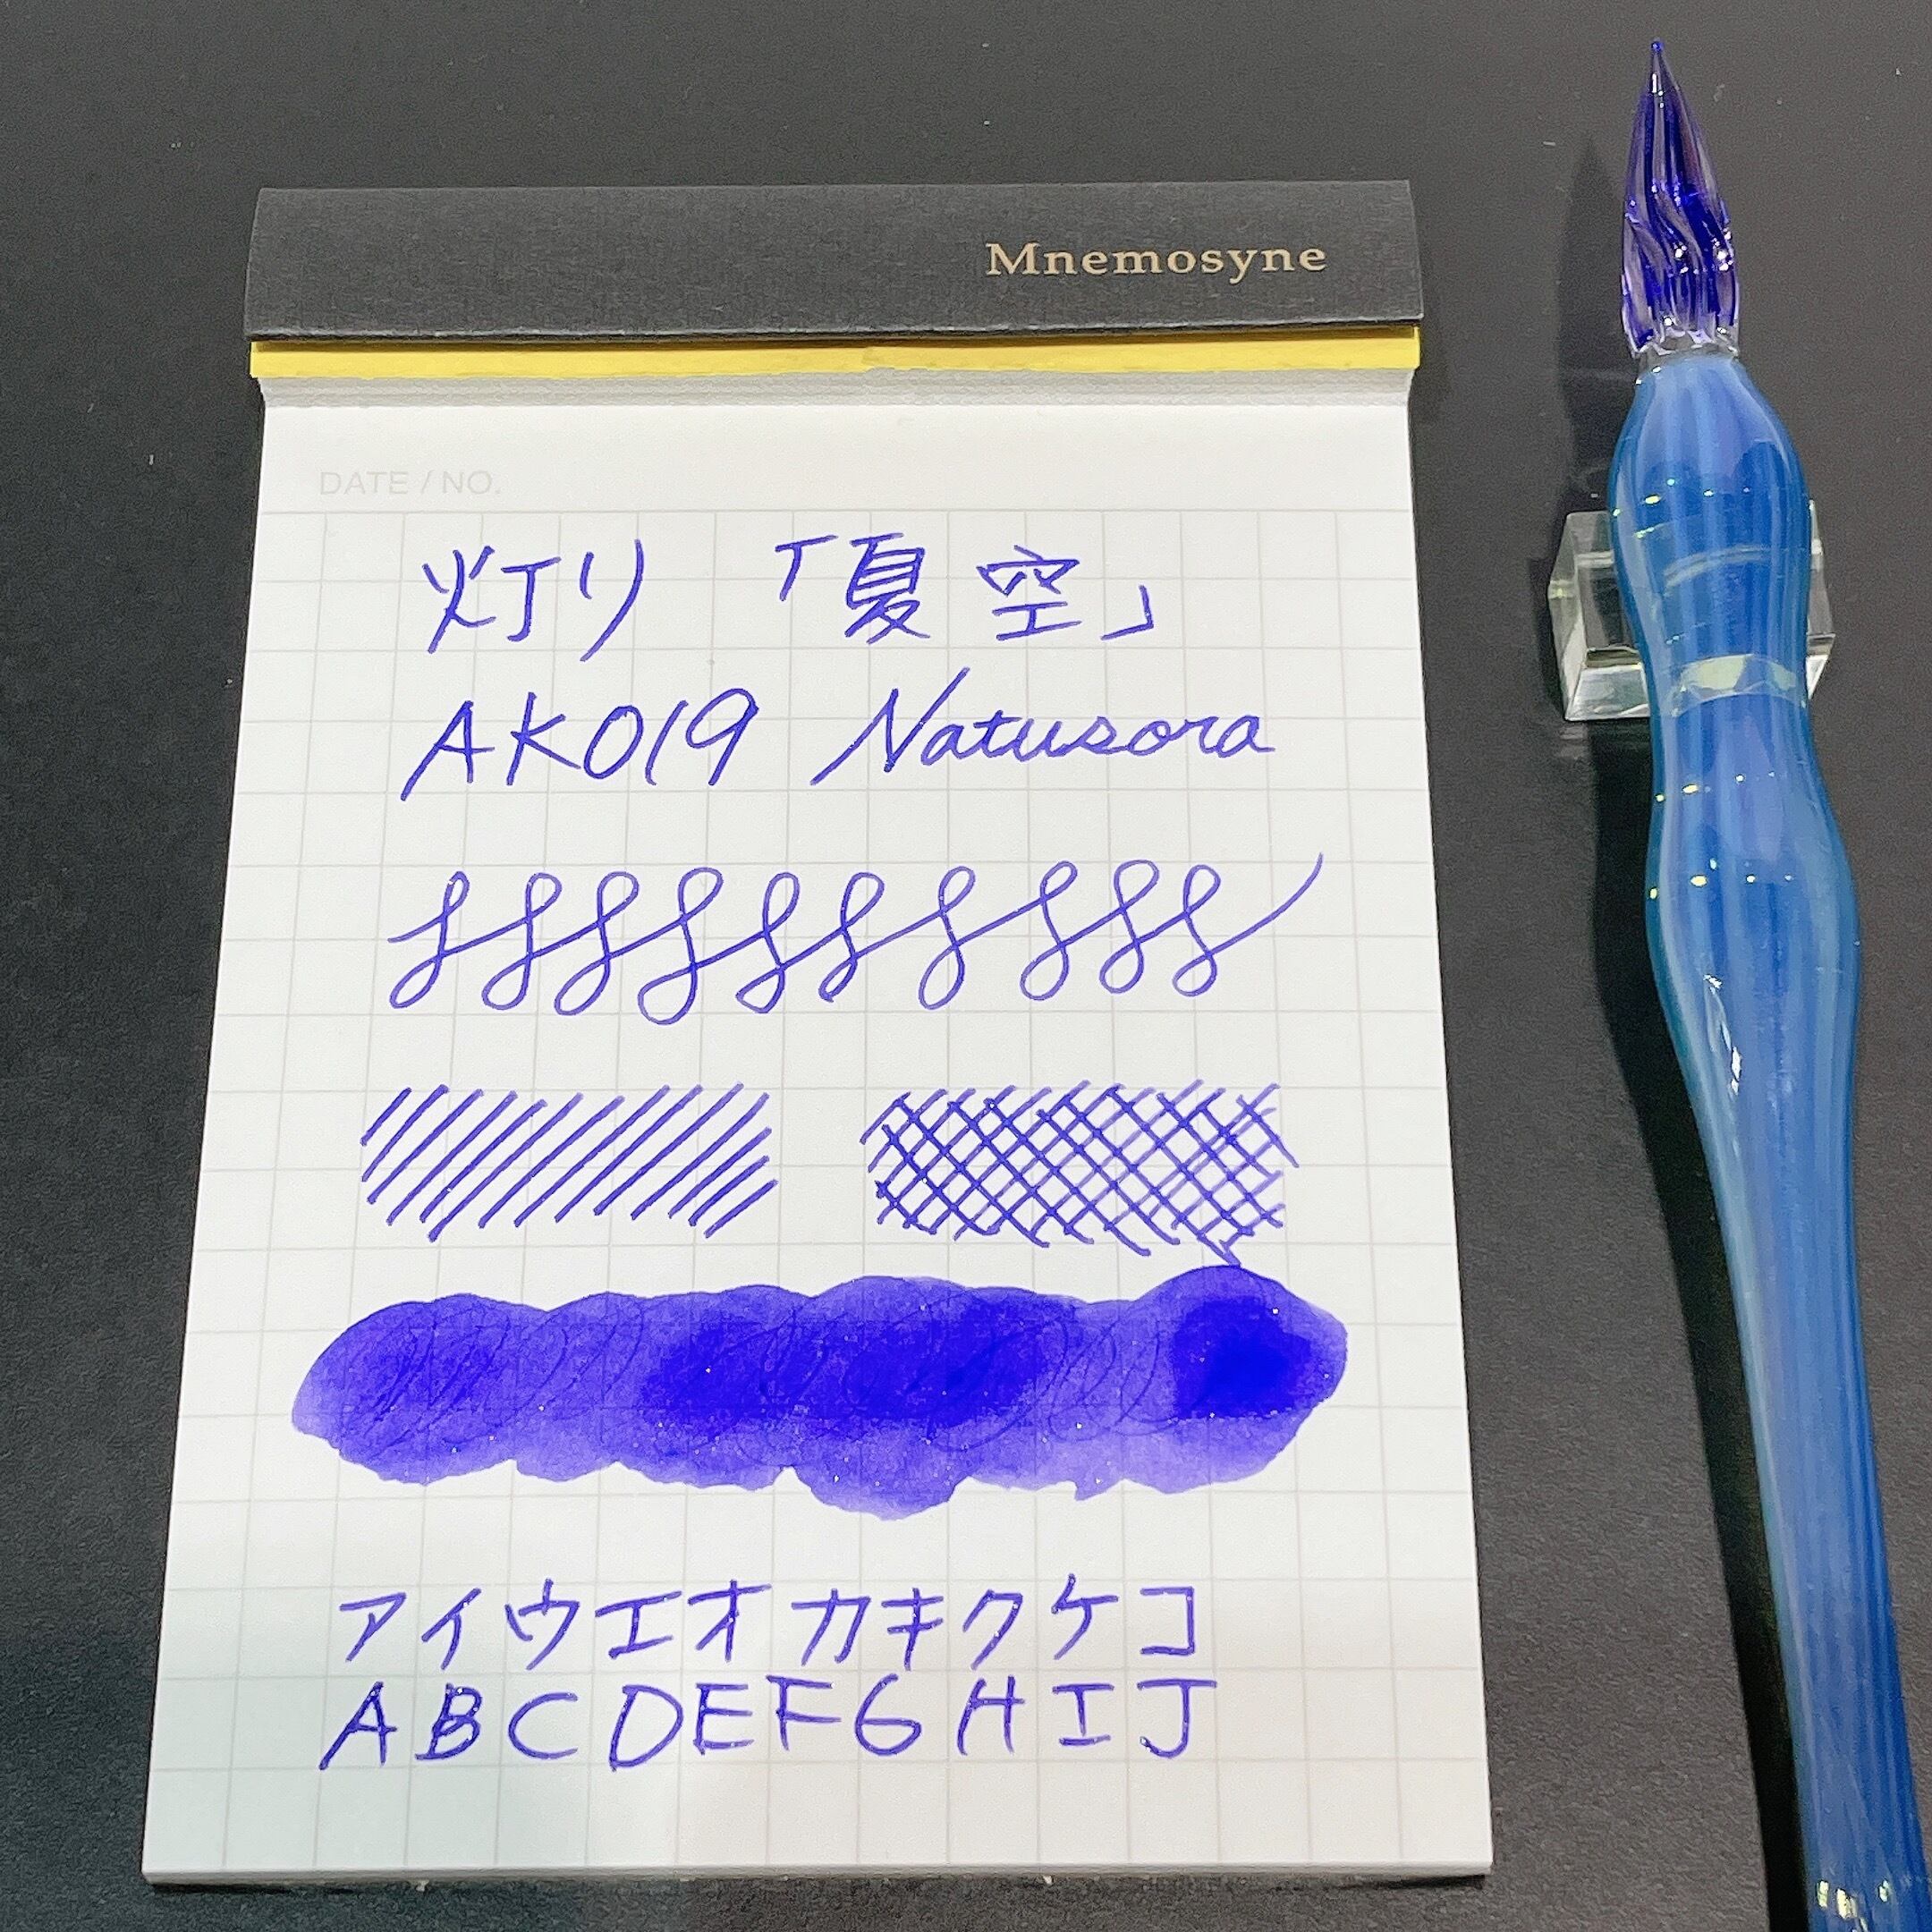 Mnemosyne
DATE / NO.
灯り 「夏空」
AK019 Natusora
アイウエオカキクケコ
ABCDEFGHIJ